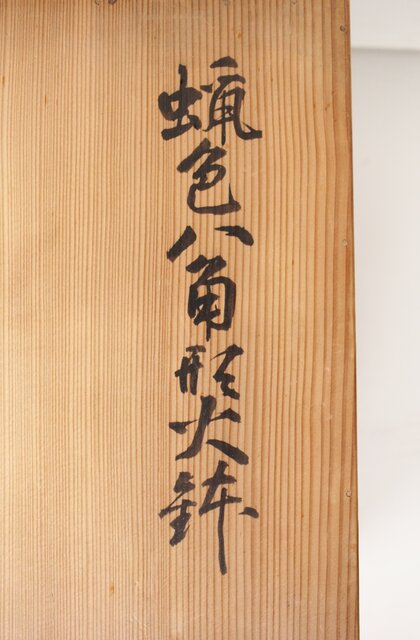 蝋色八角形火鉢